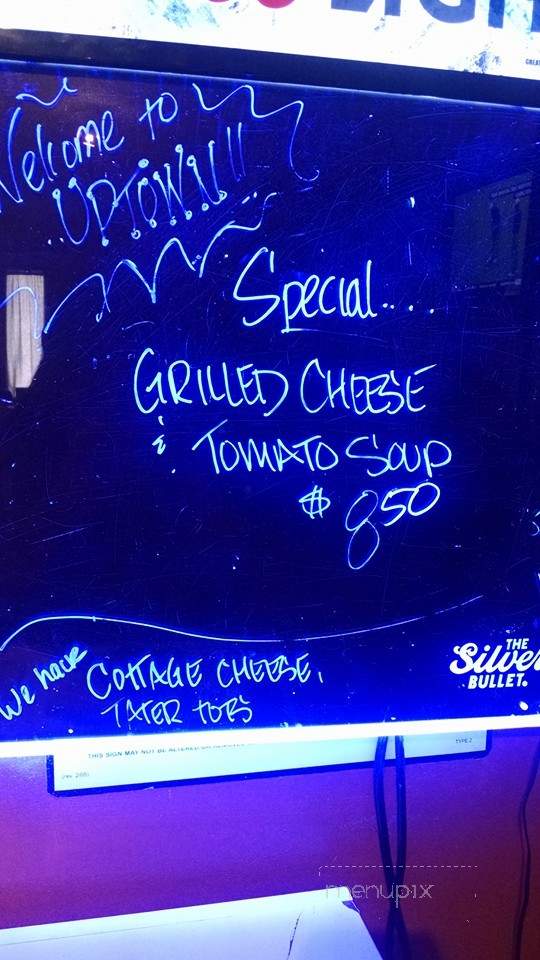 LIGHT
Welcome to
UPTOWN!!
Special....
GRILLED CHEESE
& TOMATO SOUP
$ 8.50
We have COTTAGE CHEESE,
TATER TOTS
THE
Silver
BULLET.
THIS SIGN MAY NOT BE ALTERED OR REMOVED
TYPE 2
menupix